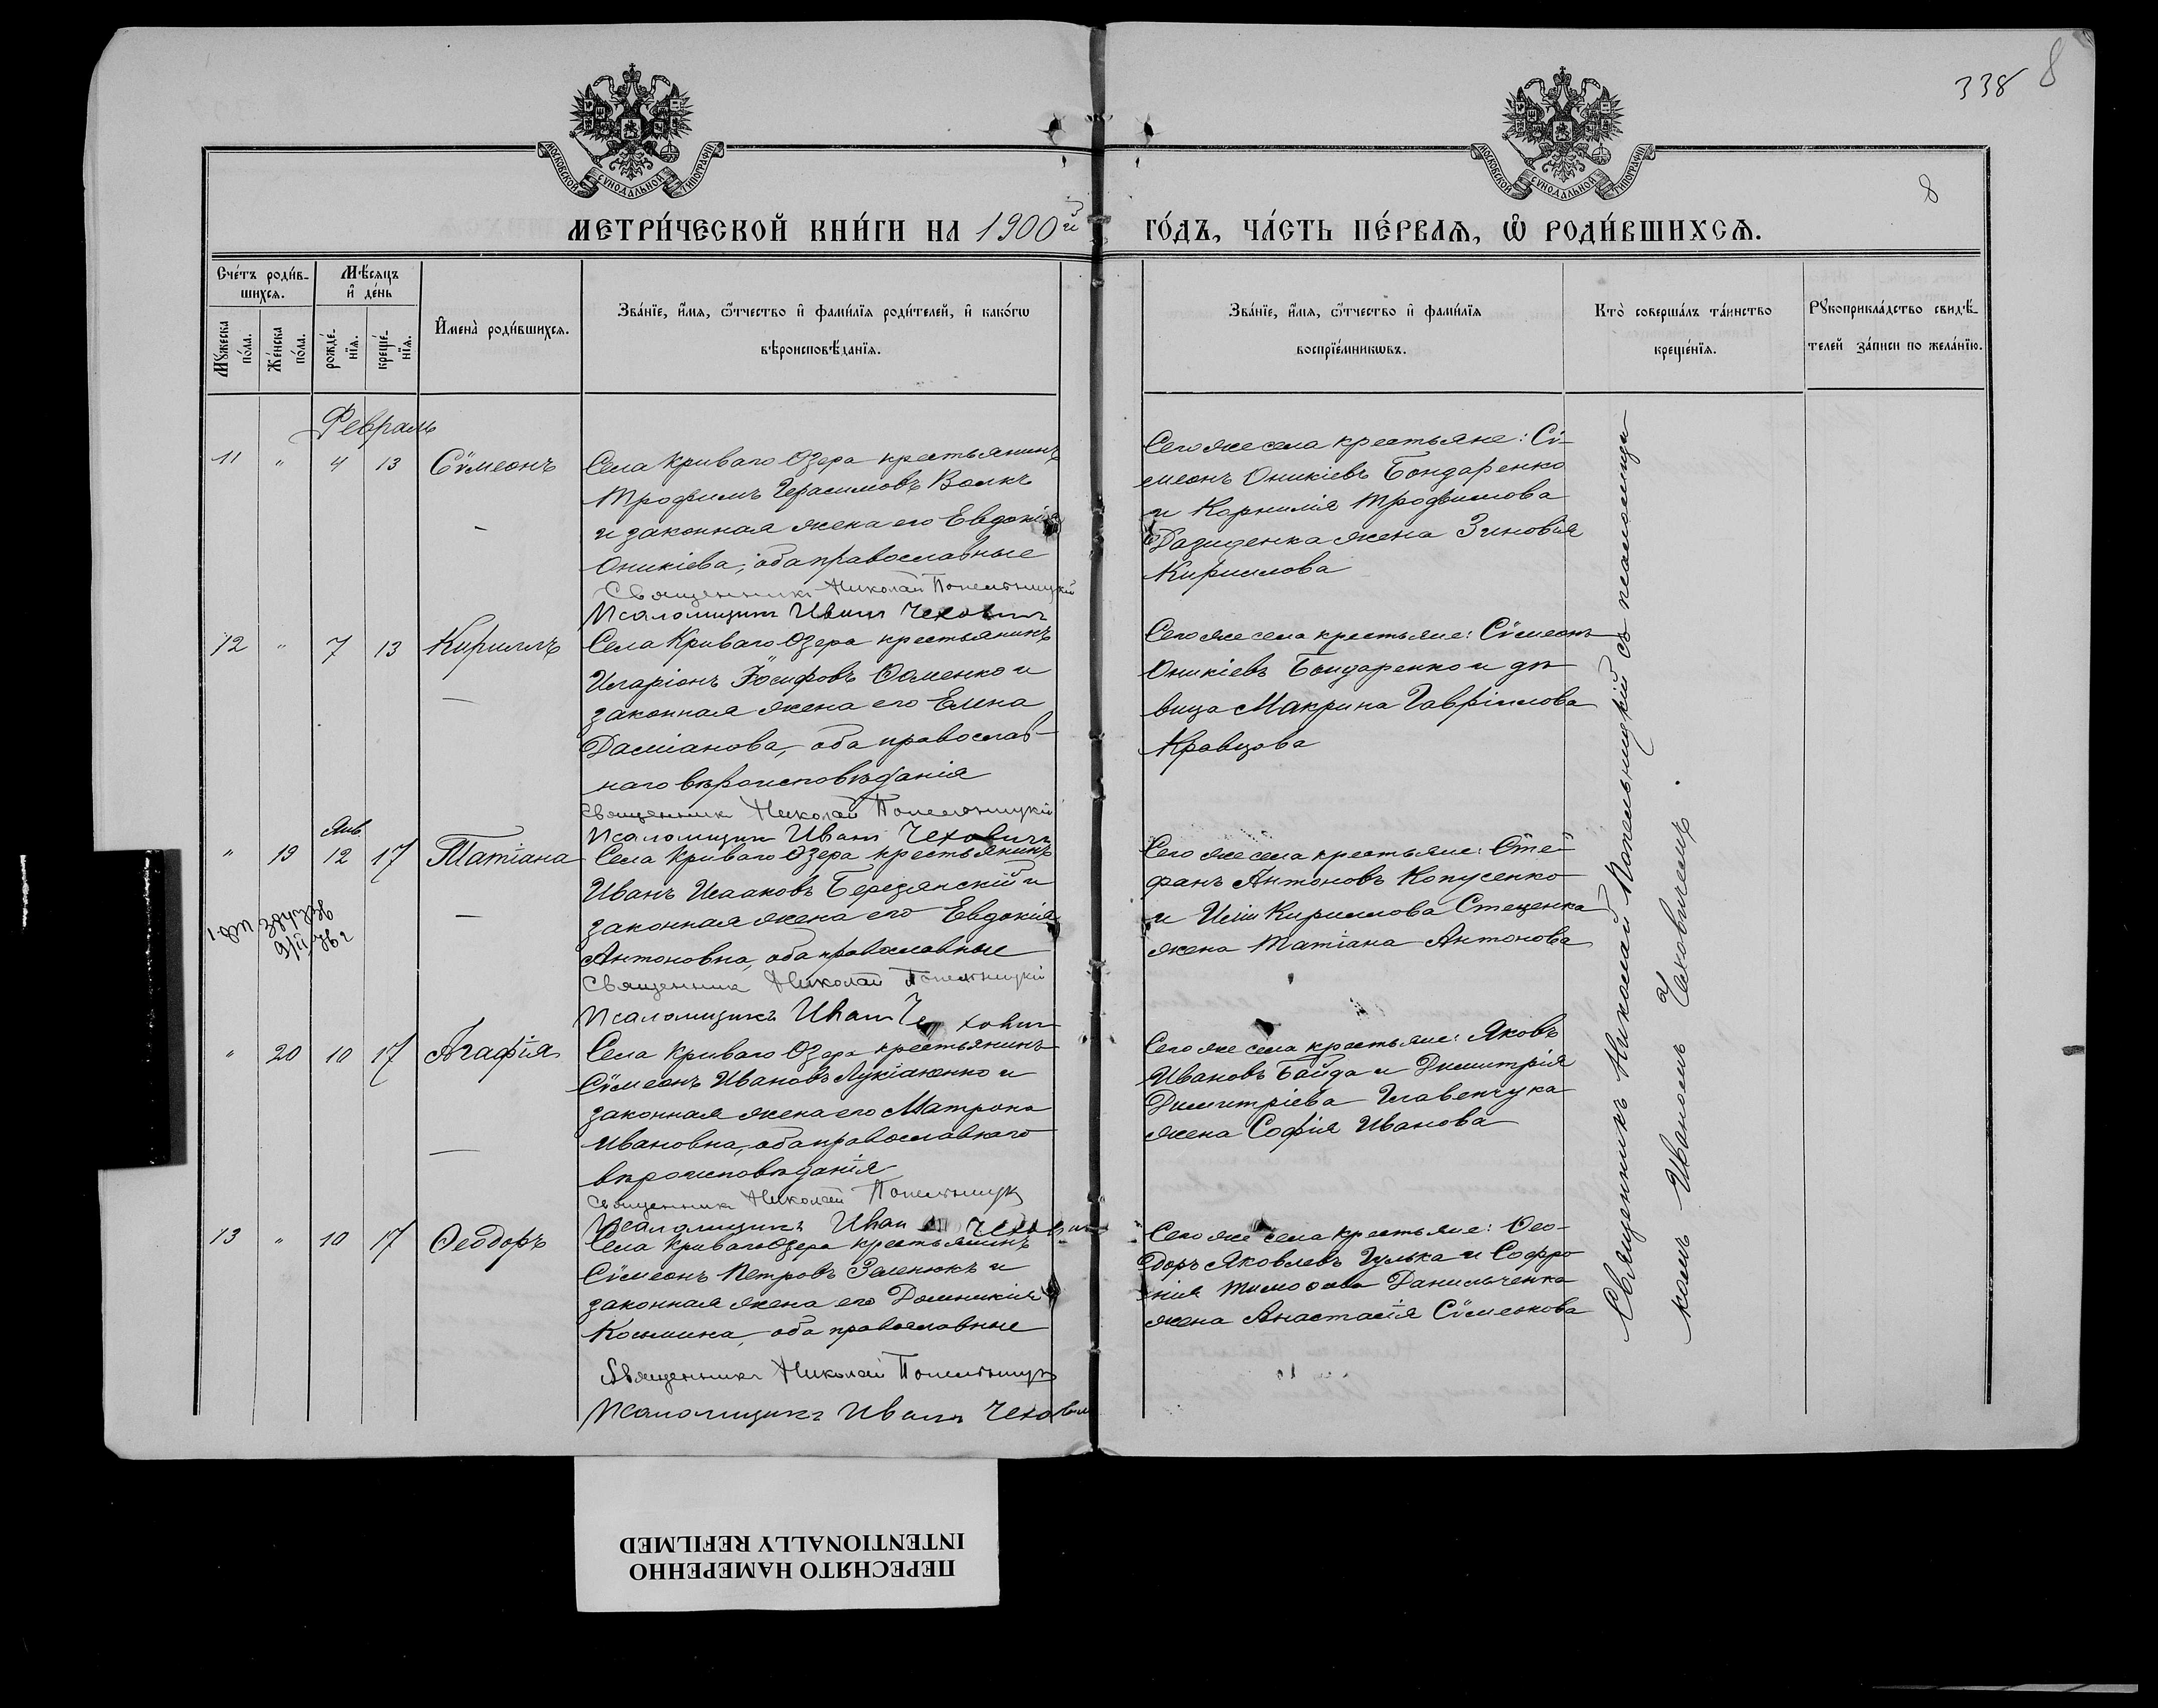 338
8
МОСКОВСКОЙ СУНОДАЛЬНОЙ ТИПОГРАФІИ
МОСКОВСКОЙ СУНОДАЛЬНОЙ ТИПОГРАФІИ
8
МЕТРИ́ЧЕСКОЙ КНИ́ГИ НА 1900й ГО́ДЪ, ЧА́СТЬ ПЕ́РВАѦ, Ѽ РОДИ́ВШИХСѦ.
Сче́тъ роди́в-
шихсѧ.
Мѣ́сѧцъ
и҆ де́нь
Мꙋ́жеска
по́ла.
Же́нска
по́ла.
рожде́-
нїѧ.
креще́-
нїѧ.
И҆мена̀ роди́вшихсѧ.
Зва́нїе, и҆́мѧ, ѻ҆́тчество и҆ фами́лїѧ роди́телей, и҆ како́гѡ
вѣроисповѣ́данїѧ.
Зва́нїе, и҆́мѧ, ѻ҆́тчество и҆ фами́лїѧ
воспрїе́мникѡвъ.
Кто̀ соверша́лъ та́инство
креще́нїѧ.
Рꙋкоприкла́дство свидѣ́-
телей за́писи по жела́нїю.
Февраль
11 " 4 13 Сѵмеонъ
Села Криваго Озера крестьянинъ
Трофимъ Герасимовъ Волкъ
и законная жена его Евдокія
Оникіева, оба православные
Священникъ Николай Попельницкій
Псаломщикъ Иванъ Чеховичъ
Сего же села крестьяне: Сѵ-
меонъ Оникіевъ Бондаренко
и Корнилія Трофимова
Дазиденка жена Зиновія
Кириллова
12 " 7 13 Кириллъ
Села Криваго Озера крестьянинъ
Иларіонъ Іосифовъ Фоменко и
законная жена его Елена
Даміанова, оба православ-
наго вѣроисповѣданія
Священникъ Николай Попельницкій
Псаломщикъ Иванъ Чеховичъ
Сего же села крестьяне: Сѵмеонъ
Оникіевъ Бондаренко и дѣ-
вица Макрина Гавріилова
Кравцова
Янв.
" 19 12 17 Татіана
9/II 76 г
Села Криваго Озера крестьянинъ
Иванъ Исааковъ Березянскій и
законная жена его Евдокія
Антоновна, оба православные
Священникъ Николай Попельницкій
Псаломщикъ Иванъ Чеховичъ
Сего же села крестьяне: Сте-
фанъ Антоновъ Копусенко
и Иліи Кириллова Стеценка
жена Татіана Антонова
" 20 10 17 Агафія
Села Криваго Озера крестьянинъ
Сѵмеонъ Ивановъ Лукіаненко и
законная жена его Матрона
Ивановна, оба православнаго
вѣроисповѣданія
Священникъ Николай Попельницкій
Псаломщикъ Иванъ Чеховичъ
Сего же села крестьяне: Яковъ
Ивановъ Байда и Димитрія
Димитріева Главенчука
жена Софія Иванова
13 " 10 17 Ѳеодоръ
Села Криваго Озера крестьянинъ
Сѵмеонъ Петровъ Зеленюкъ и
законная жена его Домникія
Косьмина, оба православные
Священникъ Николай Попельницкій
Псаломщикъ Иванъ Чеховичъ
Сего же села крестьяне: Ѳео-
доръ Яковлевъ Гулька и Софро-
нія Тимоѳеева Данильченка
жена Анастасія Сѵмеонова
Священникъ Николай Попельницкій съ псаломщи-
комъ Иваномъ Чеховичемъ.
ПЕРЕСНЯТО НАМЕРЕННО
INTENTIONALLY REFILMED